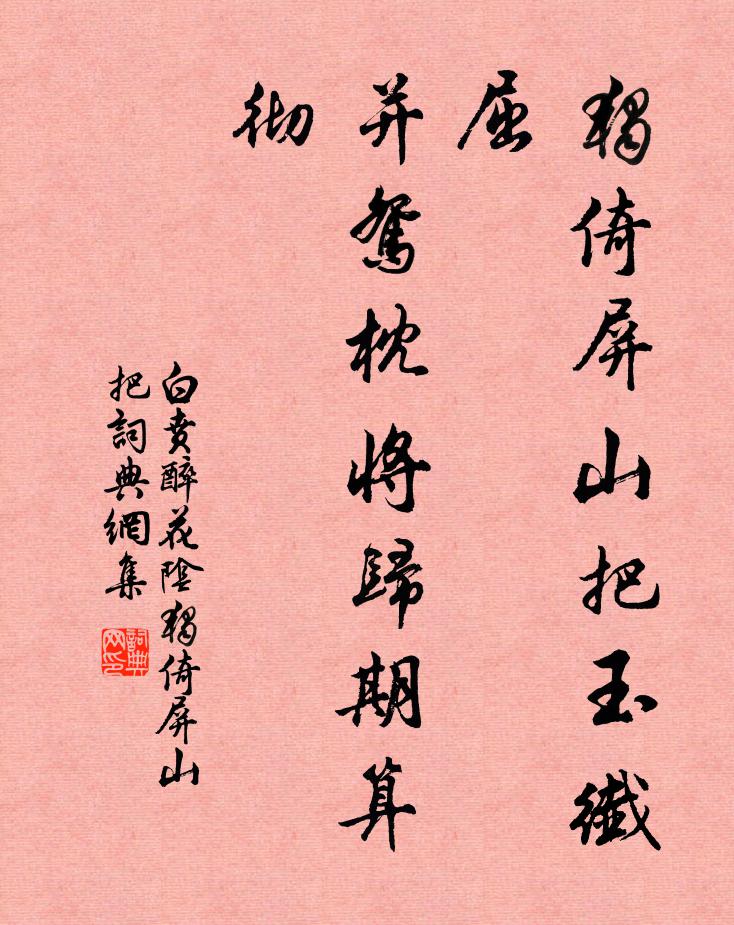 獨倚屏山把玉纖
屈
并鴛枕將歸期算
徹
白賁醉花陰獨倚屏山
把詞典網集
詞典网印